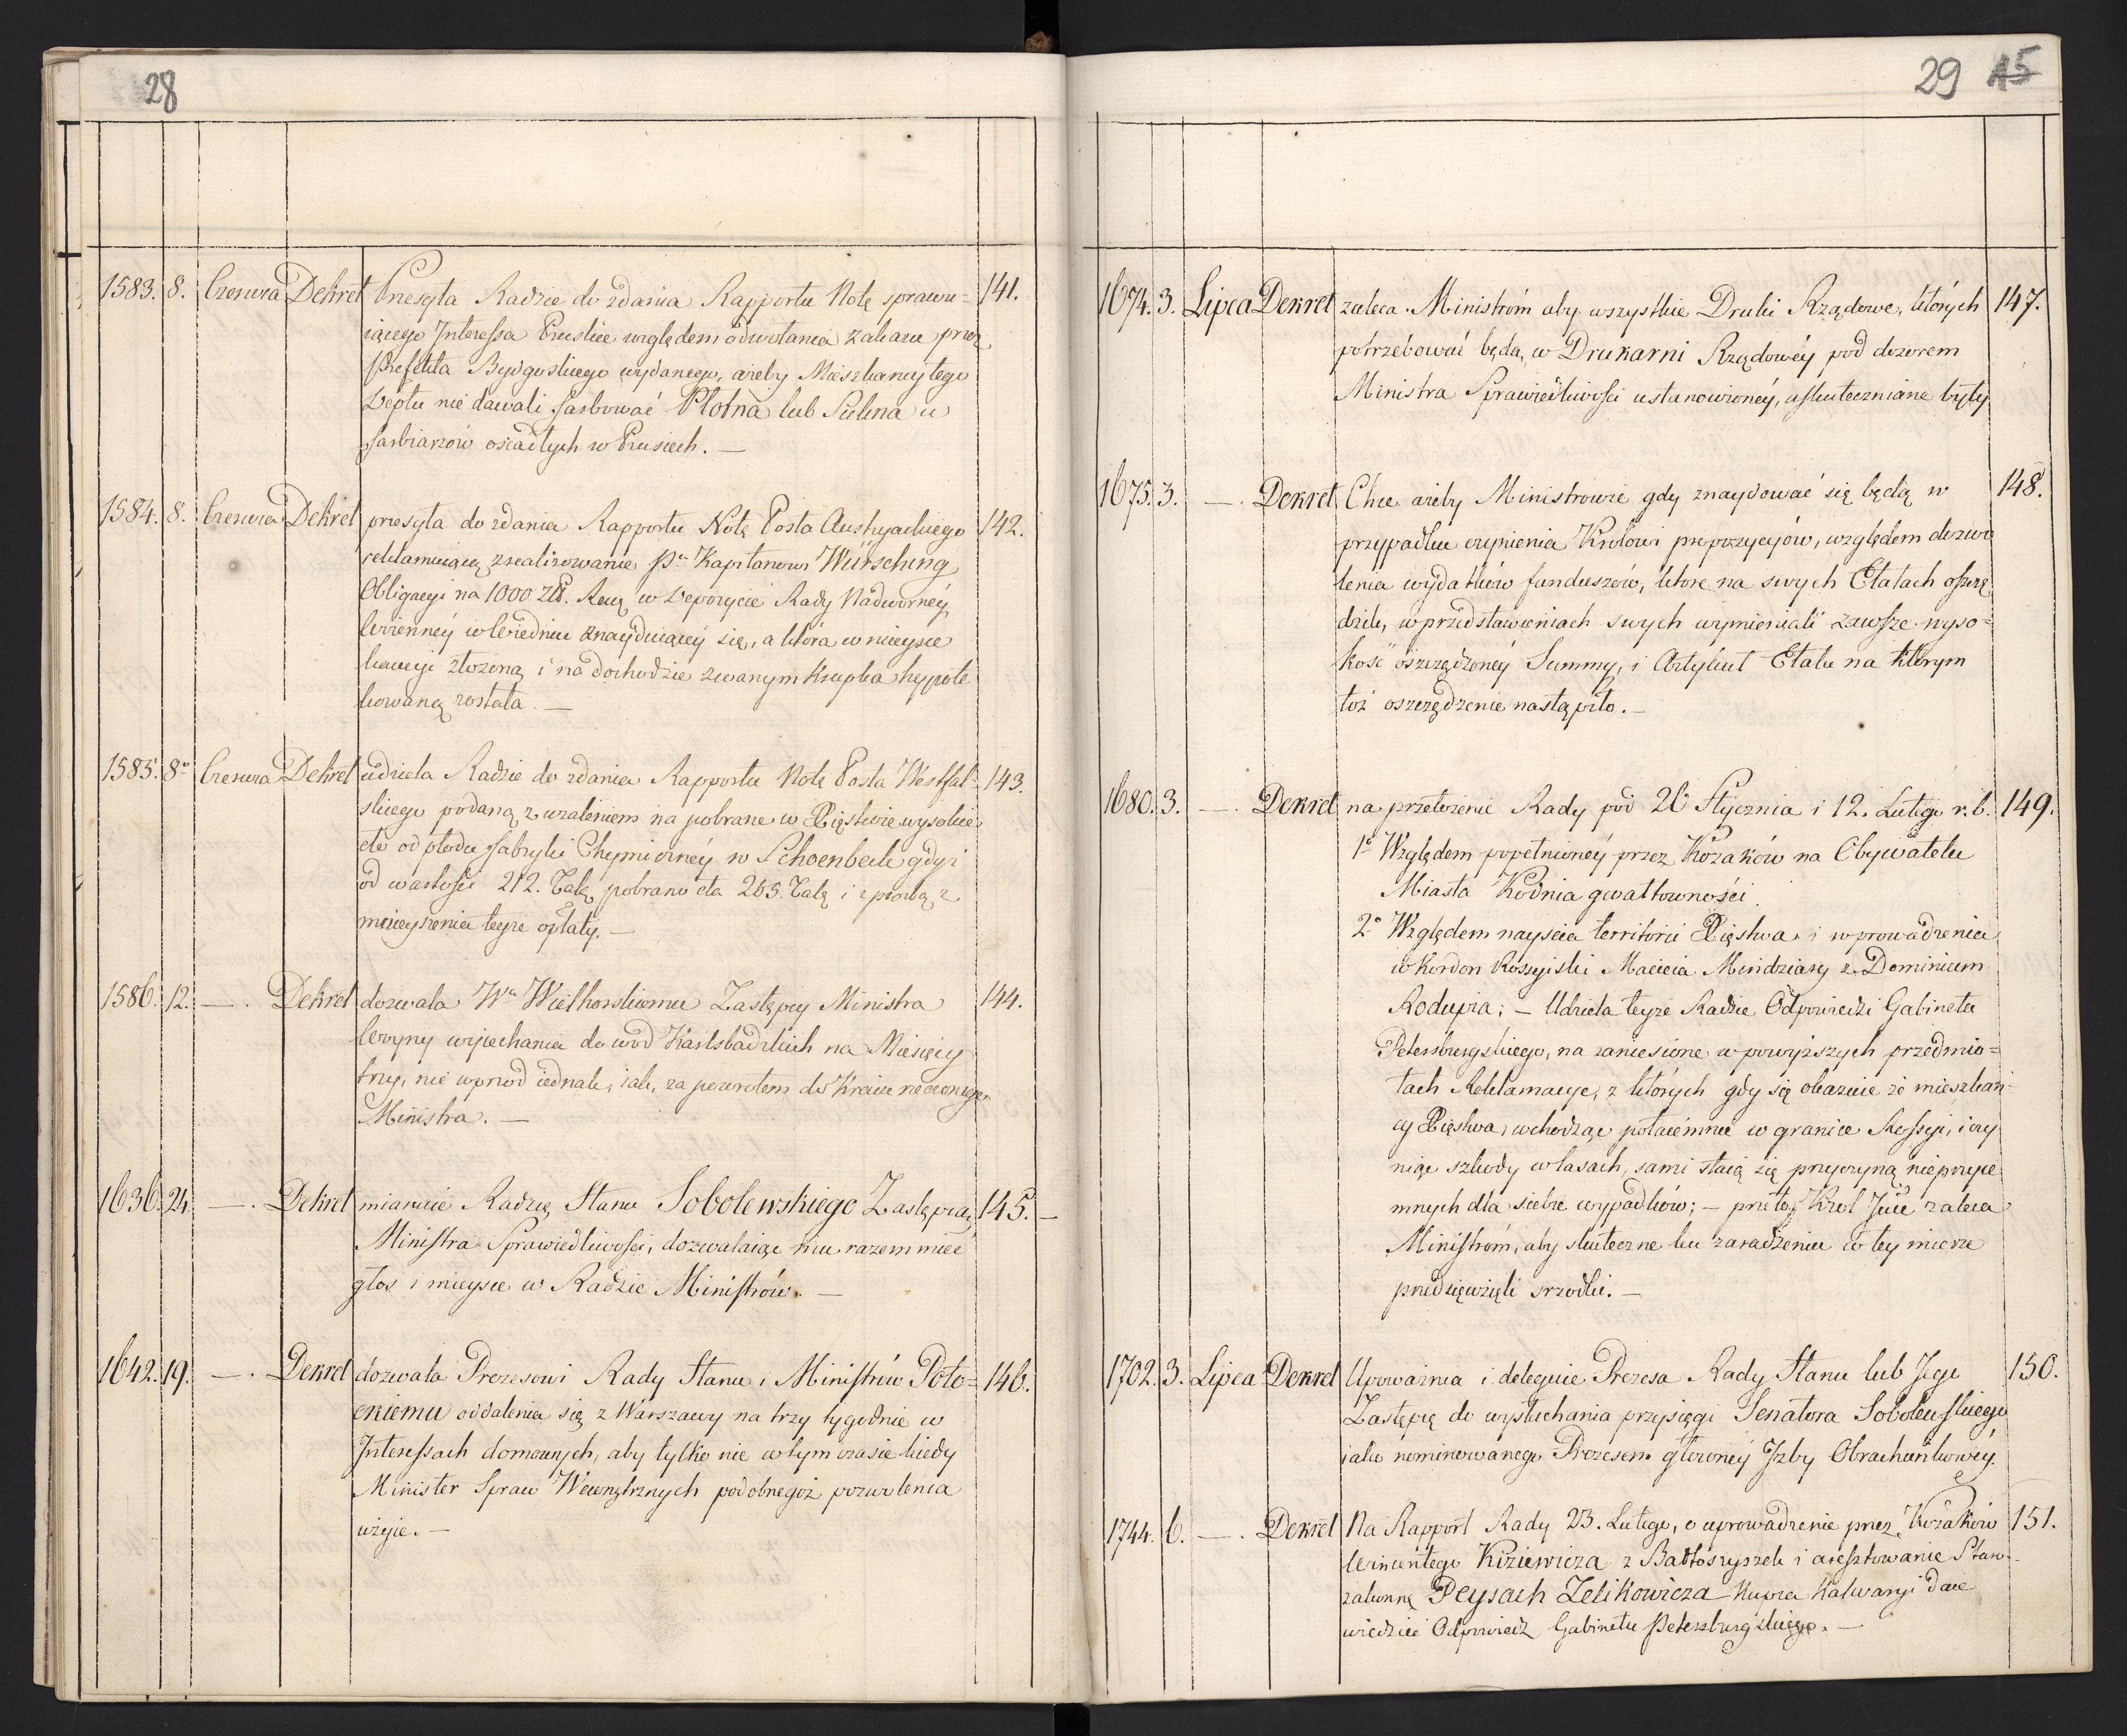 28
1583. 8. Czerwca Dekret Przesyła Radzie do zdania Rapportu Notę sprawu= 141.
iącego Interessa Pruskie względem odwołania zakazu przez
Prefekta Bydgoskiego wydanego, ażeby Mieszkańcy tego
Deptu nie dawali farbować Płotna lub Sukna u
farbiarzów osiadłych w Prusiech. —
1584. 8. Czerwca Dekret przesyła do zdania Rapportu Notę Posła Austryackiego 142.
reklamuiącą zrealizowanie Pu Kapitanowi Würsching
Obligacyi na 1000 Złł. Reńs. w Depozycie Rady Nadwornéy
Woienney w Wiedniu znayduiącey się, a która w mieysce
kaucyi złożoną i na dochodzie zwanym Krupka hypote
kowaną została. —
1585. 8o Czerwca Dekret udziela Radzie do zdania Rapportu Notę Posła Westfal= 143.
skiego podaną z użaleniem na pobrane w Xięstwie wysokie
cło od płodu fabryki Chymicznéy w Schoenbeck gdyż
od wartości 212. Tal. pobrano cła 265. Tal. i z prośbą z
mnieyszenia teyże opłaty. —
1586. 12. —. Dekret dozwala Wu Wielhorskiemu Zastępcy Ministra 144.
Woyny wyiechania do wód Karlsbadzkich na Miesięcy
trzy, nie wprzod iednak, iak, za powrotem do Kraiu rzeczonego
Ministra. —
1636. 24. —. Dekret mianuie Radzcę Stanu Sobolewskiego Zastępcą 145. —
Ministra Sprawiedliwości, dozwalaiąc mu razem mieć
głos i mieysce w Radzie Ministrów. —
1642. 19. —. Dekret dozwala Prezesowi Rady Stanu i Ministrów Poto= 146.
ckiemu oddalenia się z Warszawy na trzy tygodnie w
Interessach domowych, aby tylko nie w tym czasie kiedy
Minister Spraw Wewnętrznych podobnegoż pozwolenia
użyie. —
29 15
1674. 3. Lipca Dekret zaleca Ministróm aby wszystkie Druki Rządowe, których 147.
potrzebować będą, w Drukarni Rządowéy pod dozorem
Ministra Sprawiedliwości ustanowionéy, uskuteczniane były
1675. 3. —. Dekret Chce ażeby Ministrowie gdy znaydować się będą w 148.
przypadku czynienia Krolowi propozycyów, względem dozwo
lenia wydatków funduszów, które na swych Etatach oszczę
dzili, w przedstawieniach swych wymieniali zawsze wyso=
kość oszczędzonéy Summy, i Artykuł Etatu na którym
toż oszczędzenie nastąpiło. —
1680. 3. —. Dekret na przełożenie Rady pod 26 Stycznia i 12. Lutego r. b. 149.
1o Względem popełnionéy przez Kozaków na Obywatelu
Miasta Kodnia gwałtowności.
2o Względem nayscia territorii Xięstwa i wprowadzenia
w Kordon Rossyiski Macieia Mindziary z Dominium
Rodupia; — Udziela teyże Radzie Odpowiedzi Gabinetu
Petersburgskiego, na zaniesione w powyższych przedmio=
tach Reklamacye, z których gdy się okazuie że mieszkań=
cy Xięstwa, wchodząc potaiemnie w granice Rossyi, i czy
niąc szkody w lasach, sami staią się przyczyną nieprzyie
mnych dla siebie wypadków; — przeto Krol Jmć zaleca
Ministróm, aby skuteczne ku zaradzeniu w tey mierze
przedsięwzięli srzodki. —
1702. 3. Lipca Dekret Upoważnia i deleguie Prezesa Rady Stanu lub Jego 150.
Zastępcę do wysłuchania przysięgi Senatora Sobolewskiego
iako nominowanego Prezesem głowney Jzby Obrachunkowéy.
1744. 6. —. Dekret Na Rapport Rady 23. Lutego, o uprowadzenie przez Kozaków 151.
Wincentego Kiziewicza z Bartoszyszek i aresztowanie Staro-
zakonnę Peysach Zelikowicza Kupca Kalwaryi daie
wiedzieć Odpowiedz Gabinetu Petersburgskiego. —